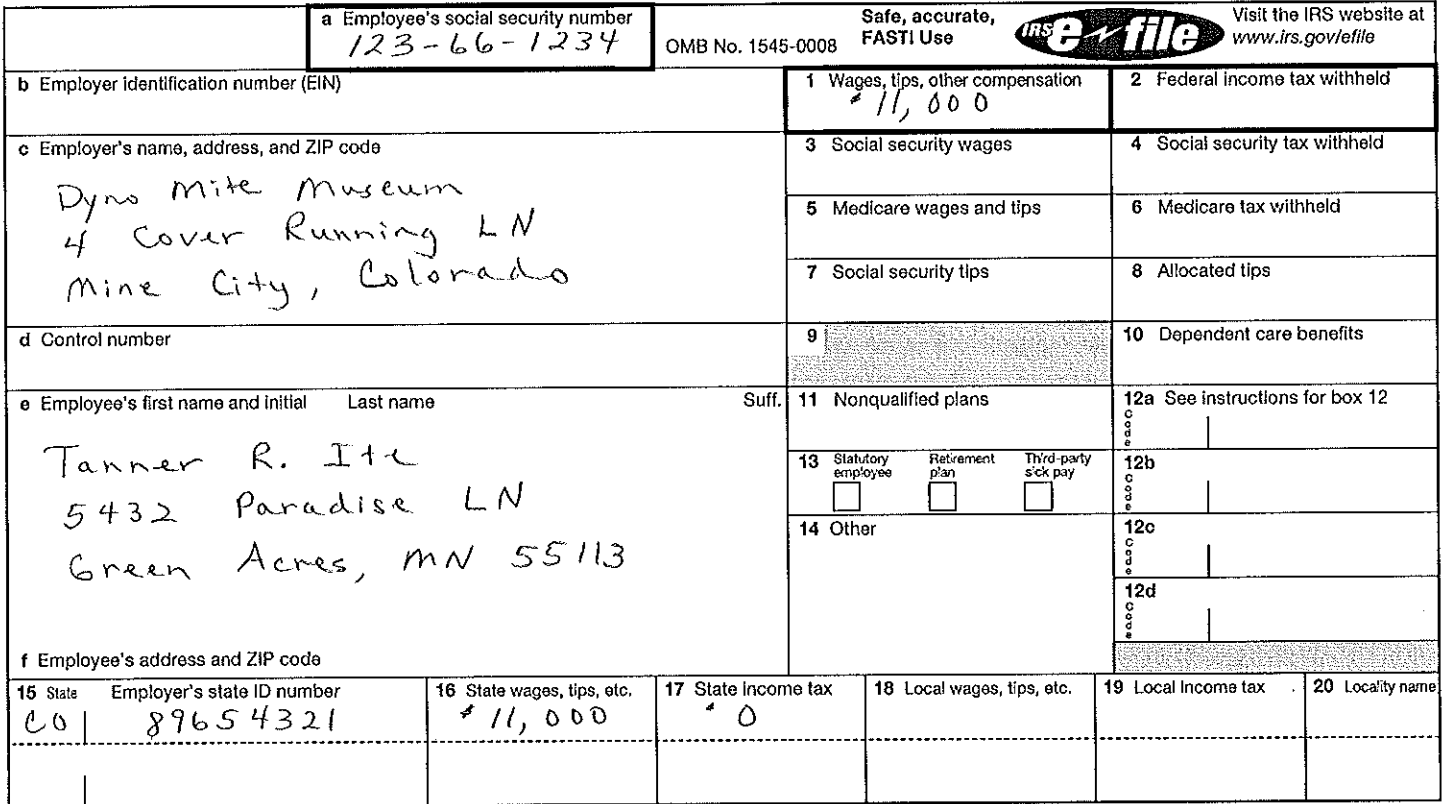 a Employee's social security number
123-66-1234
OMB No. 1545-0008
Safe, accurate,
FAST! Use
IRS e-file
Visit the IRS website at
www.irs.gov/efile
b Employer identification number (EIN)
1 Wages, tips, other compensation
$11,000
2 Federal income tax withheld
c Employer's name, address, and ZIP code
Dyno Mite Museum
4 Cover Running LN
Mine City, Colorado
3 Social security wages
4 Social security tax withheld
5 Medicare wages and tips
6 Medicare tax withheld
7 Social security tips
8 Allocated tips
d Control number
9
10 Dependent care benefits
e Employee's first name and initial Last name Suff.
Tanner R. Ite
5432 Paradise LN
Green Acres, MN 55113
f Employee's address and ZIP code
11 Nonqualified plans
12a See instructions for box 12
Code
13 Statutory employee Retirement plan Third-party sick pay
12b
Code
14 Other
12c
Code
12d
Code
15 State Employer's state ID number
CO 89654321
16 State wages, tips, etc.
$11,000
17 State income tax
$0
18 Local wages, tips, etc.
19 Local income tax
20 Locality name